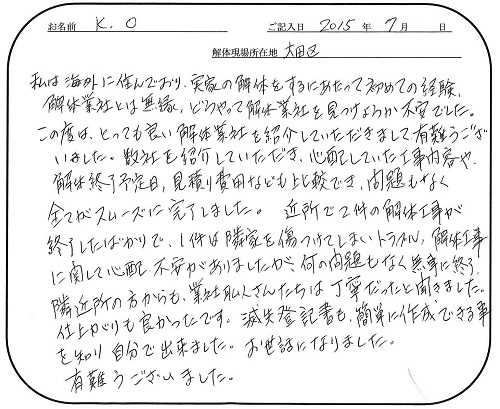 お名前 K.O ご記入日 2015年 7月 日
解体現場所在地 大田区
私は海外に住んでおり、実家の解体をするにあたって初めての経験、
解体業社とは無縁、どうやって解体業社を見つけようか不安でした。
この度は、とっても良い解体業社を紹介していただきまして有難うござ
いました。数社を紹介していただき、心配していた工事内容や、
解体終了予定日、見積り費用なども比較でき、問題もなく
全てがスムーズに完了しました。 近所で2件の解体工事が
終了したばかりで、1件は隣家を傷つけてしまいトラブル、解体工事
に関して心配、不安がありましたが、何の問題もなく無事に終了、
隣近所の方からも、業社職人さんたちは丁寧だったと聞きました。
仕上がりも良かったです。滅失登記書も、簡単に作成できる事
を知り自分で出来ました。お世話になりました。
有難うございました。